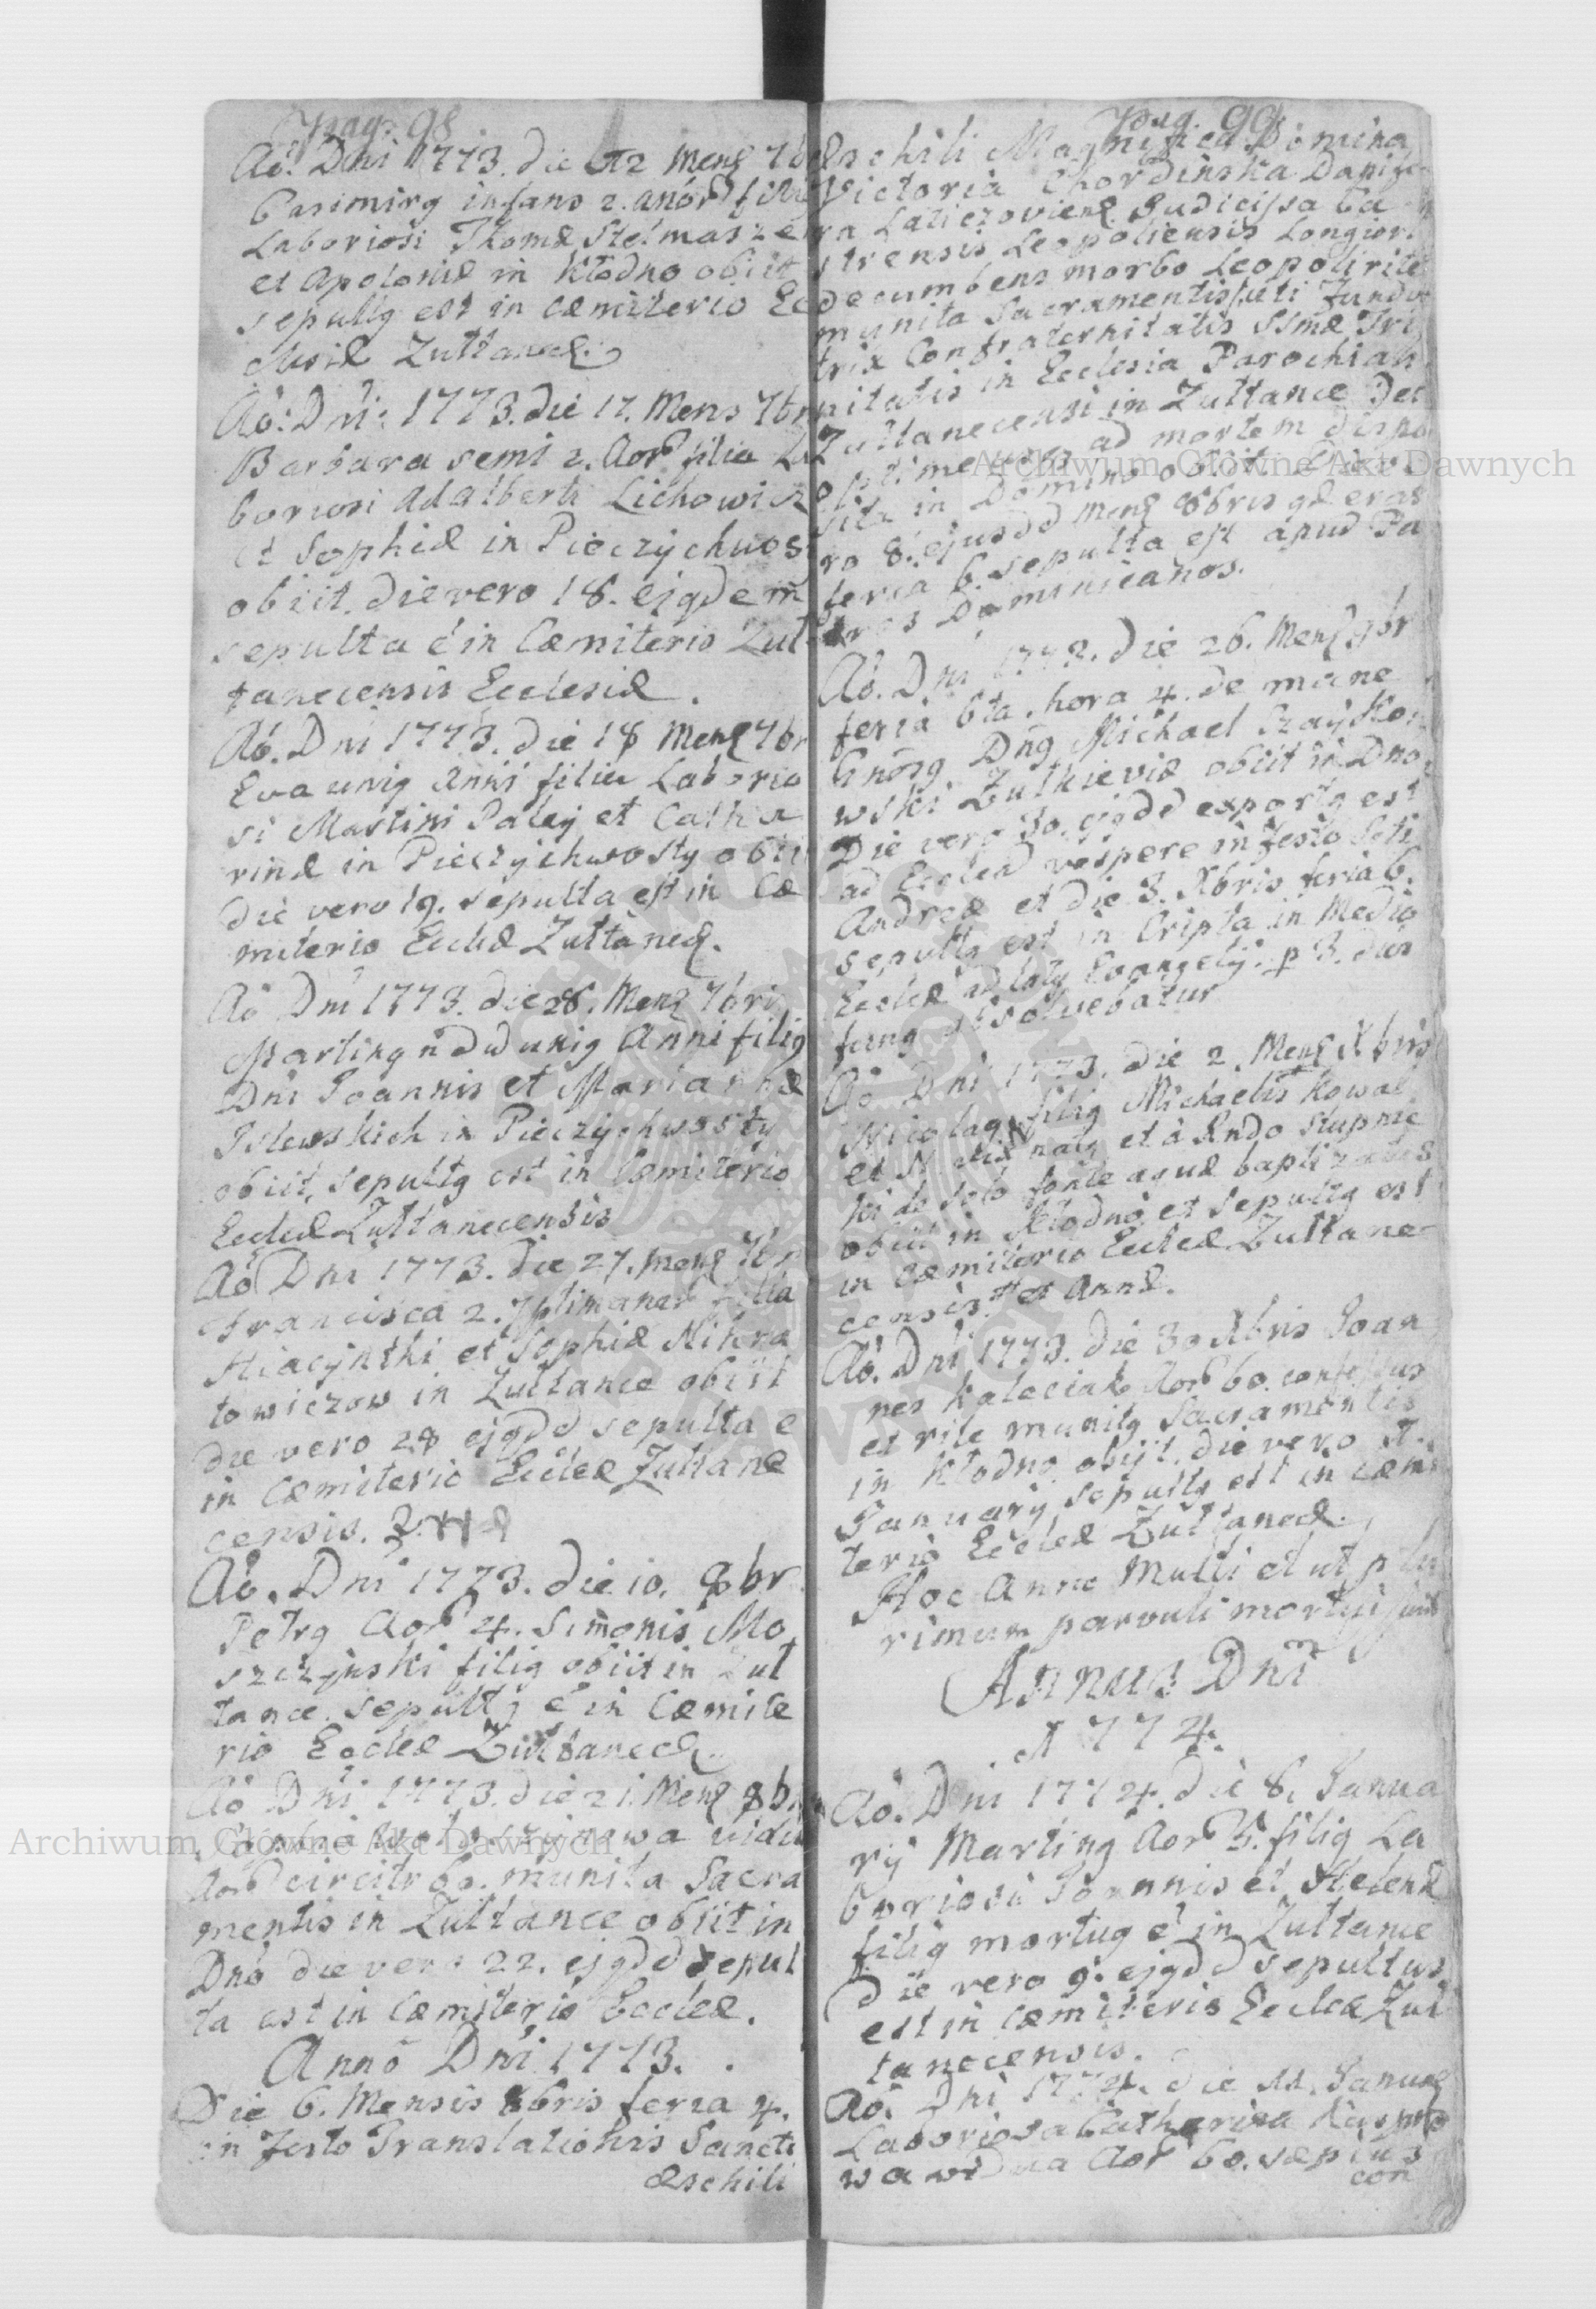 Pag. 98
Aō. Dni 1773. die 12 Mens 7br
Casimirg infans 2. anōr filig
Laboriosi Thomæ Stelmasze
et Apoloniæ in Kłodno obiit
sepultg est in Cæmiterio Ec
clesiæ Zułtanec.
Aō: Dni: 1773. die 17. Mens 7br
Barbara semi 2. Aor filia La
boriosi Adalberti Lichowicz
et Sophiæ in Pieczychwost
obiit. die vero 18. ejqdem
sepulta ē in Cæmiterio Zuł
tanecensis Ecclesiæ.
Aō. Dni 1773. die 18 Mens 7br
Eva unig Anni filia Laborio
si Martini Paley et Catha
rinæ in Pieczychwosty obii
die vero 19. sepulta est in Cæ
miterio Eccłæ Zułtanec.
Aō Dni 1773. die 28. Mens 7bri
Marting ndd unig Anni filig
Dni Joannis et Mariannæ
in Pieczychwosty
obiit, sepultg est in Cæmiterio
Eccleæ Zułtanecensis
Aō Dni 1773. die 27. Mens 7br
Francisca 2. filia
Hiacynthi et Sophiæ Mikna
towiczow in Zułtance obiit
die vero 28 ejqdd sepulta e
in Cæmiterio Eccleæ Zułtane
censis.
Aō. Dni 1773. die 10. 8br
Petrg Aor 4. Simonis Mo
szczynski filig obiit in Zuł
tance. sepultg ē in Cæmite
rio Eccleæ Zułtanec.
Aō Dni 1773. die 21. Mens 8br
vidu
Aor circitr 60. munita Sacra
mentis in Zułtance obiit in
Dnō die vero 22. ejqdd sepul
ta est in Cæmiterio Eccleæ.
Annō Dni 1773.
Die 6. Mensis 8bris feria 4.
in festo Translationis Sancti
Æschili
Pag. 99
Æschili Magnifica Domina
Victoria Chordinska Danife
ra Laticzoviens. Judicissa Ca
strensis Leopoliensis Longiori
decumbens morbo Leopoli rite
munita Sacramentis, uti Funda
trix Confraternitatis SSmæ Tri
nitatis in Ecclesia Parochiali
Zułtanecensi in Zułtance Dei
optime ad mortem dispo
sita in Domino obiit. Die ve
ro 8. ejusdd Mens 8bris qæ erat
feria 6. sepulta est apud Pa
tres Dominicanos.
Aō. Dni 1773. die 26. Mens 9br
feria 6ta. hora 4. de mane
Gnōsg Dng Michael Rzaysko
wski Zułkieviæ obiit in Dno
Die vero 30. ejqdd exportg est
ad Eccleā vespere in festo Scti
Andreæ et die 3. Xbris feria 6.
sepultg est in Cripta in Medio
Eccleæ ad latg Evangelij. p 3. dies
fung absolvebatur
Aō Dni 1773. die 2. Mens Xbris
Nicolag filig Michaelis Kowal
et natg et à Rndo Stupnic
ki de solo fonte aquæ baptizatus
obiit in Kłodno et sepultg est
in Cæmiterio Eccleæ Zułtane
censis. et Annæ.
Aō. Dni 1773. die 30 Xbris Joan
nes Kaleciak Aor 60. confessus
et rite munitg Sacramentis
in Kłodno obijt, die vero 1.
Januarij sepultg est in Cæmi
terio Eccleæ Zułtanec.
Hoc Anno Multi et ut plu
rimum parvuli mortui sunt
Annus Dni
1774.
Aō. Dni 1774. die 8. Janua
rij Marting Aor 3. filig La
boriosi Joannis et Helenæ
filig mortug ē in Zułtance
die vero 9. ejqdd sepultus
est in Cæmiteris Eccleæ Zuł
tanecensis.
Aō. Dni 1774. die 11. Januar
Laboriosa Catharina
wa vidua Aor 60. sæpius
con
Archiwum Główne Akt Dawnych
Archiwum Główne Akt Dawnych